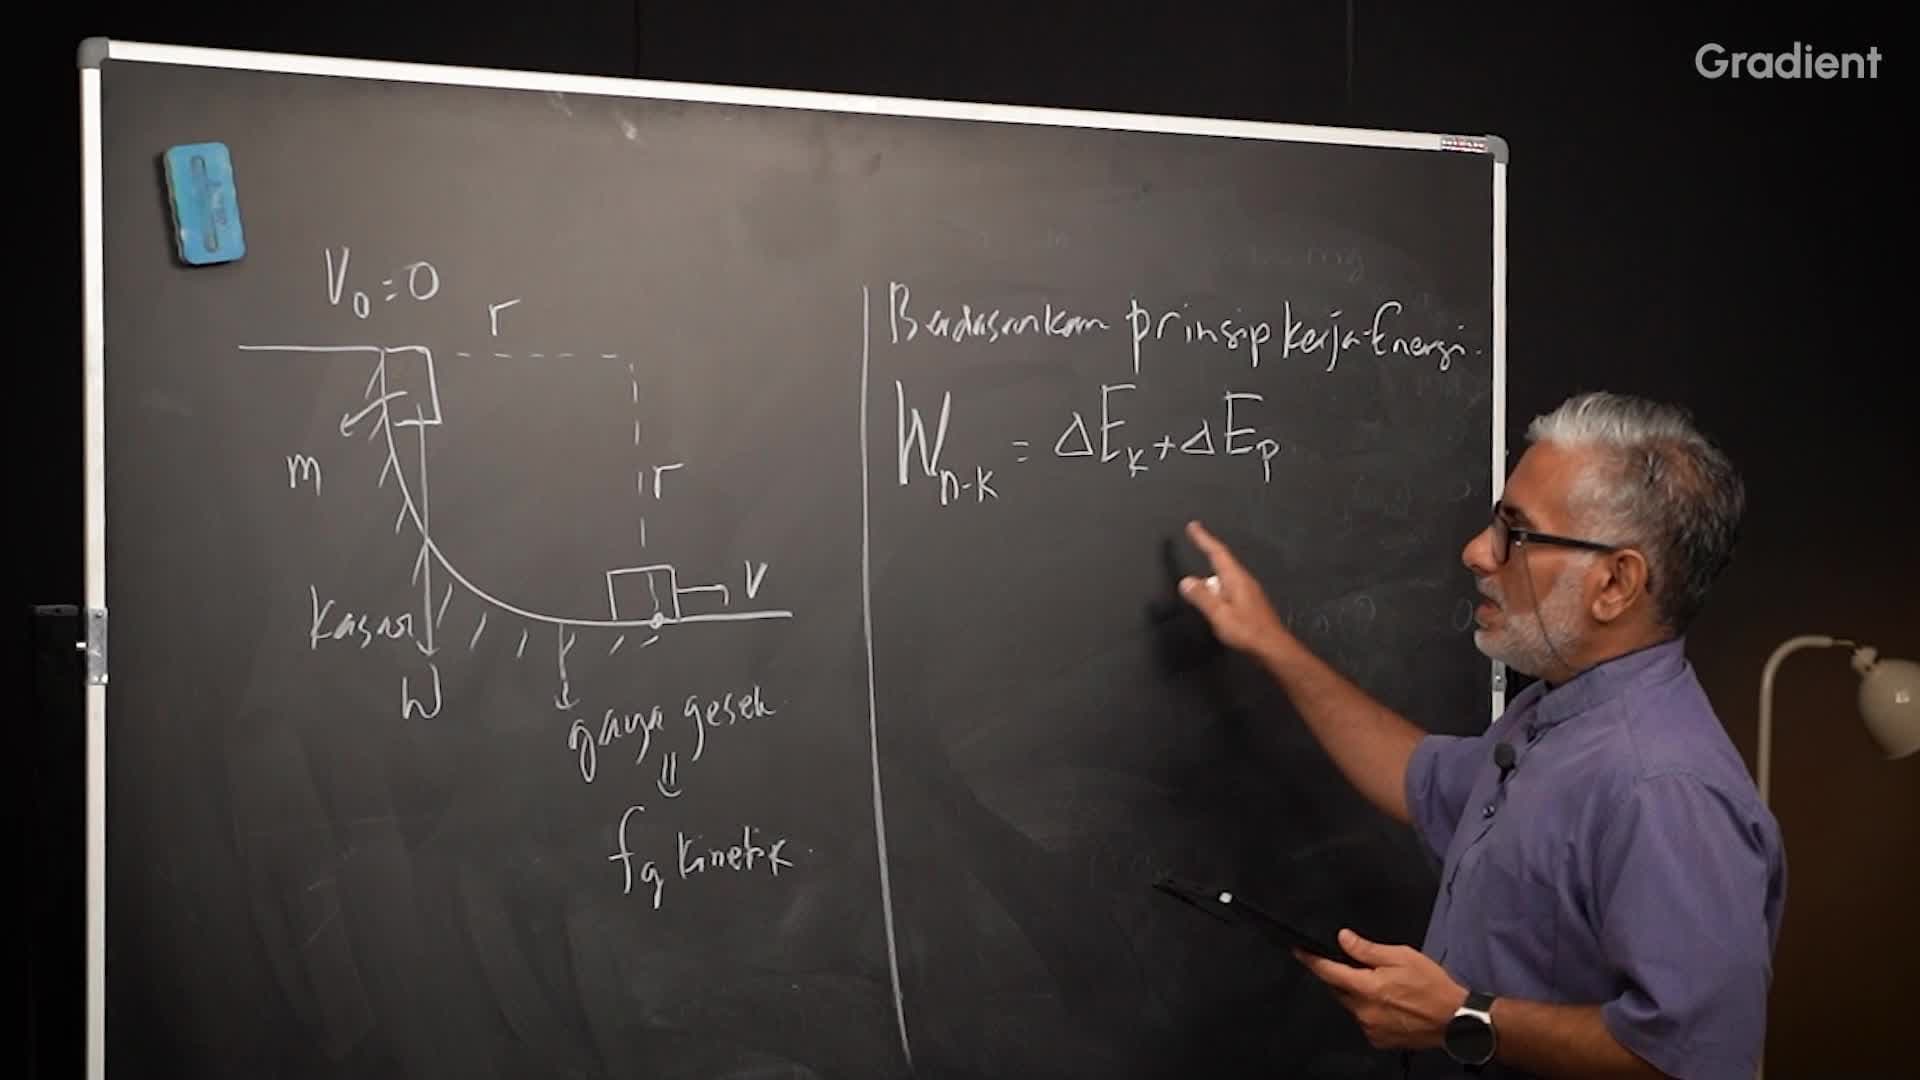 Gradient
V₀ = 0
r
m
r
V
kasar
W
gaya gesek
⇓
fg kinetik.
Berdasarkan prinsip kerja-Energi.
W n-k = ΔE k + ΔE p